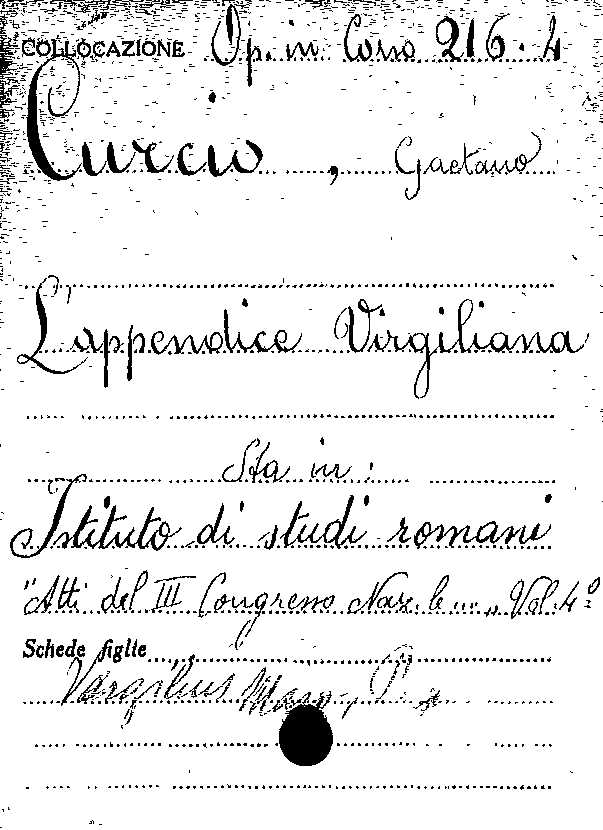 COLLOCAZIONE Op. in Corso 216.4
Curcio, Gaetano
L'appendice Virgiliana
Sta in:
Istituto di studi romani
"Atti del III Congresso Naz.le ... „ Vol. 4º
Schede figlie
Vergilius Maro, P.